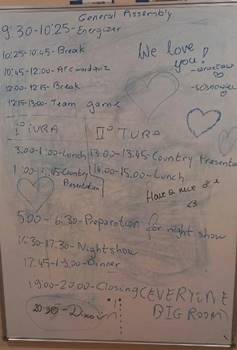 General Assembly
9:30-10:25-Energizer
10:25-10:45-Break
10:45-12:00-
12:00-12:15-Break
12:15-13:00-Team game
We love you!
I TURA
II° TURA
3:00-1:00-Lunch
13:00-13:45-Country Presentation
1:00-1:45-Country Presentation
14:00-15.00-Lunch
Have a nice
<3
5:00-6:30-Preparation for night show
16:30-17:30-Nightshow
17:45-19:00-Dinner
19:00-20:00-Closing (EVERYONE
BIG ROOM)